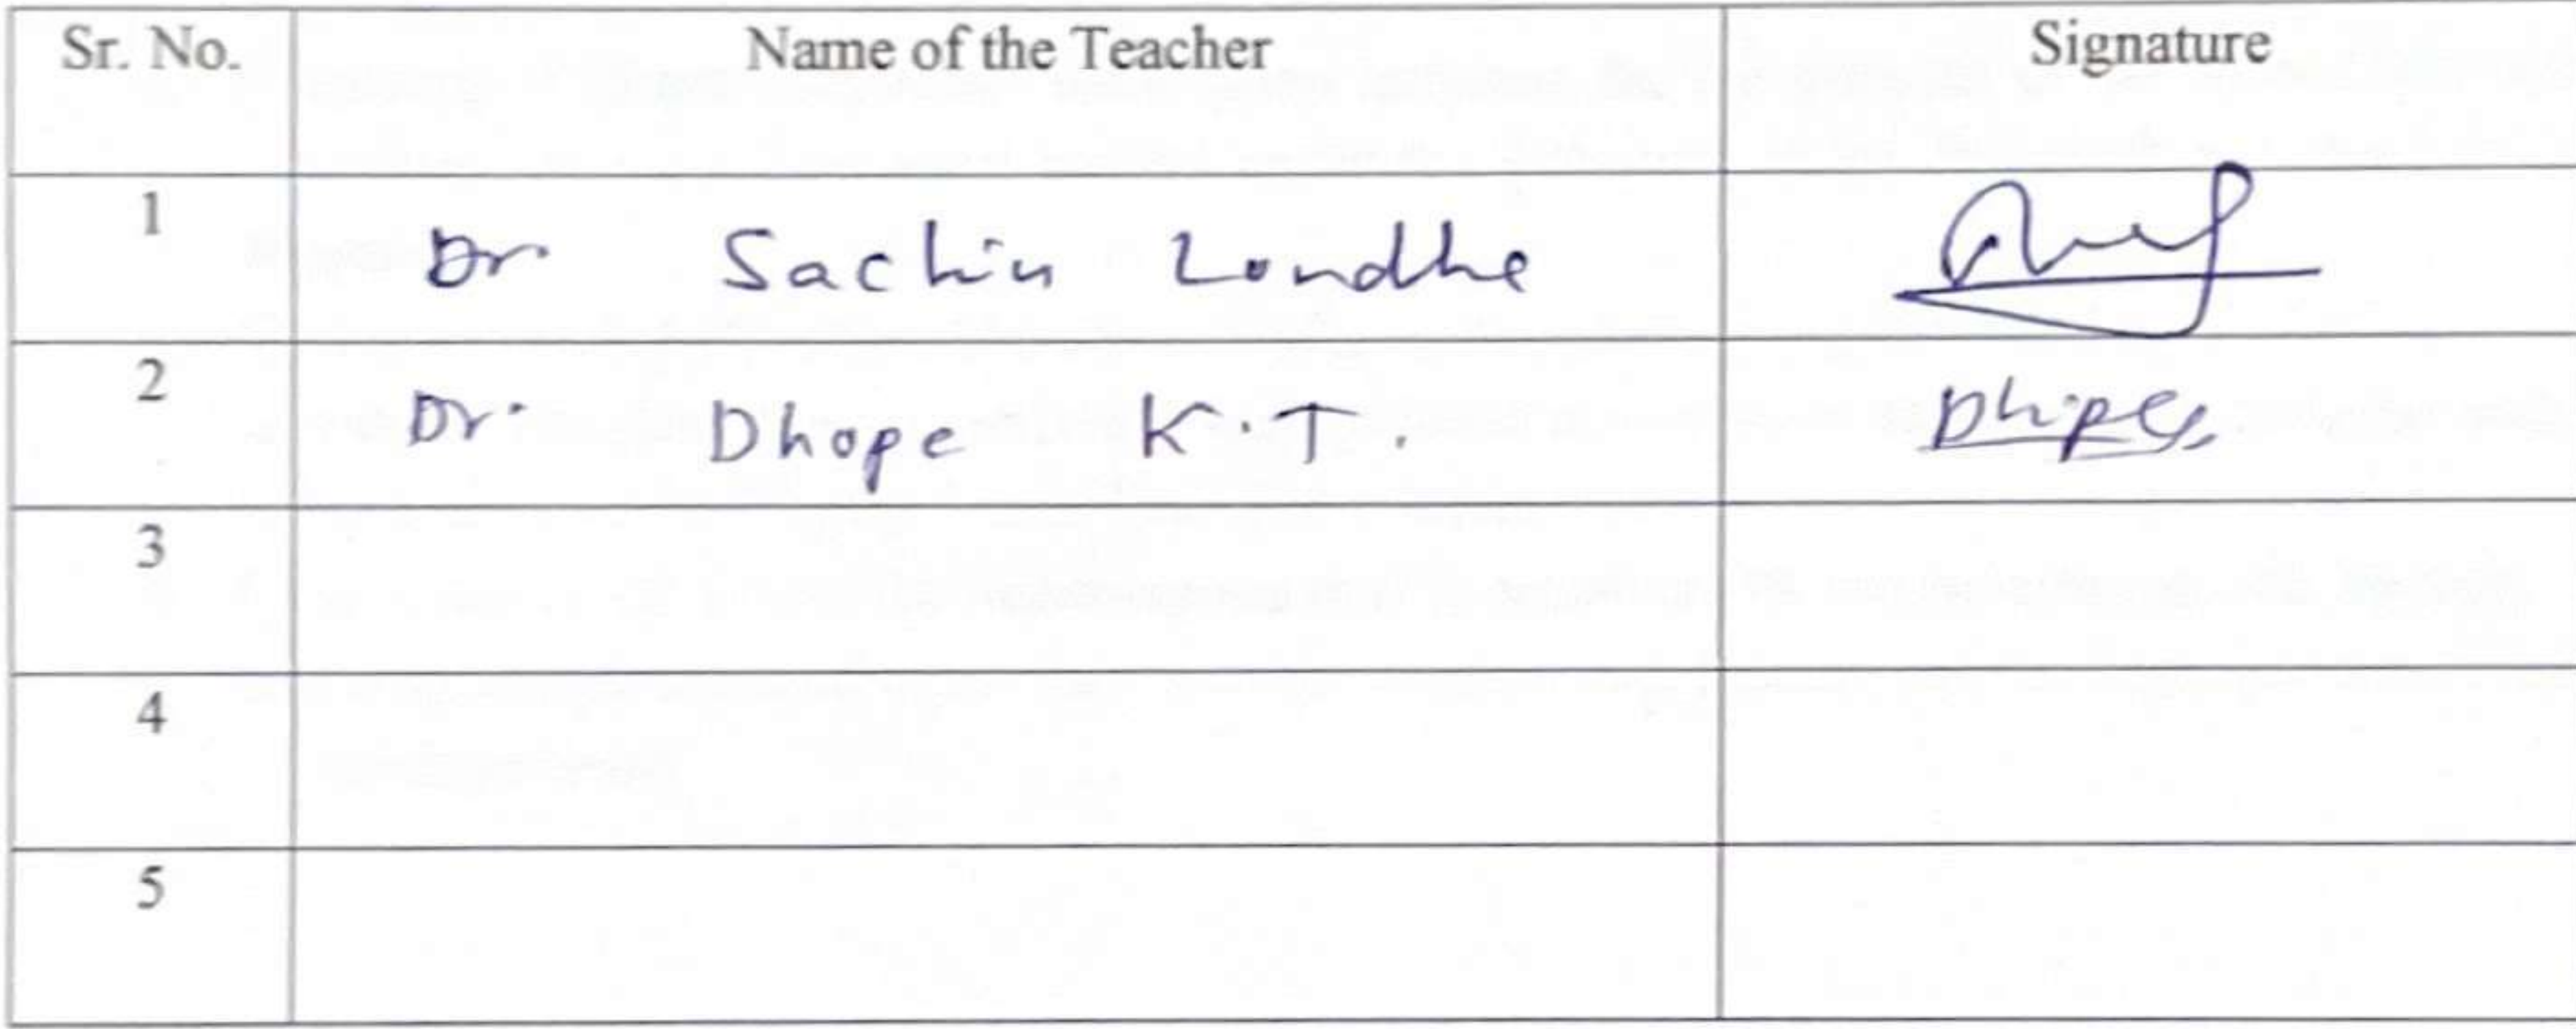 Sr. No. Name of the Teacher Signature
1 Dr Sachin Londhe
2 Dr. Dhope K.T.
3
4
5